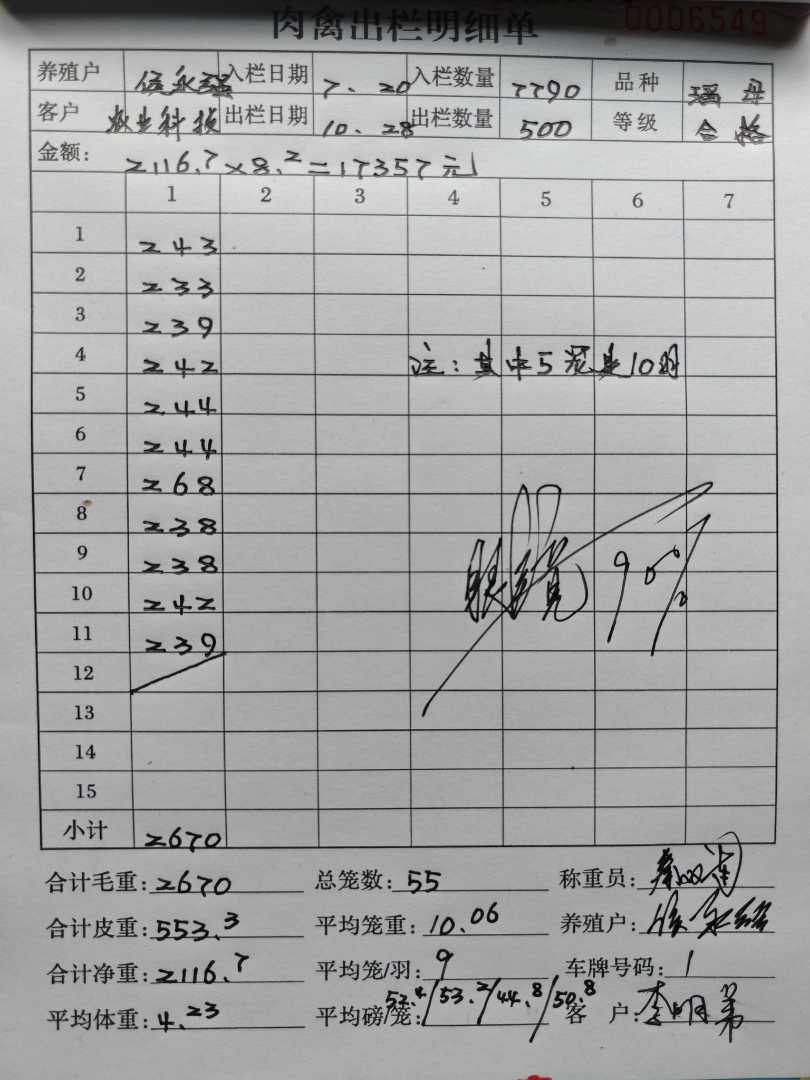 肉禽出栏明细单 0006549
养殖户 入栏日期 7.20 入栏数量 7790 品种 瑶母
客户 牧生科技 出栏日期 10.28 出栏数量 500 等级 合格
金额: 2116.7×8.2=17357元
1 2 3 4 5 6 7
1 243
2 233
3 239
4 242 注:其中5笼是10羽
5 244
6 244
7 268
8 238
9 238
10 242
11 239
12
13
14
15
小计 2670
合计毛重: 2670 总笼数: 55 称重员:
合计皮重: 553.3 平均笼重: 10.06 养殖户:
合计净重: 2116.7 平均笼/羽: 9 车牌号码: 1
平均体重: 4.23 平均磅/笼: 52.4/53.2/44.8/50.8 客户: